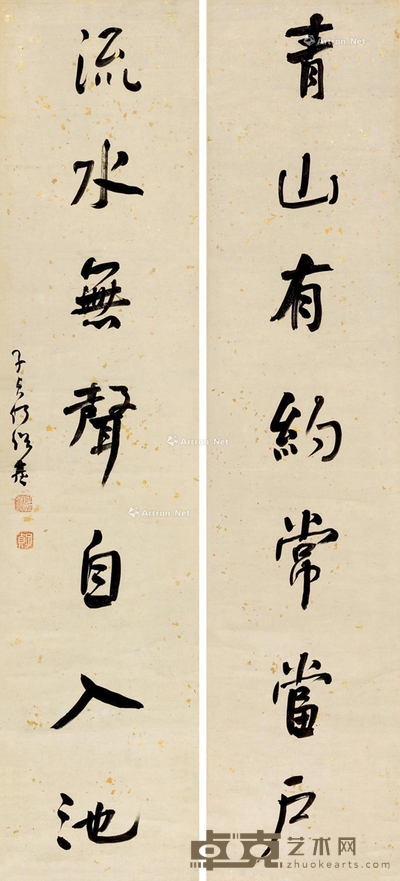 青山有約常當戶
流水無聲自入池
子貞何紹基
Artron.Net
Artron.Net
Artron.Net
Artron.Net
卓克艺术网
zhuokearts.com